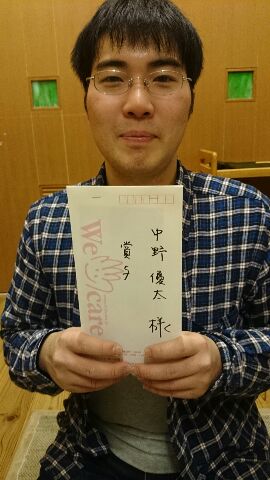 中野 優太 様
賞与
We
care